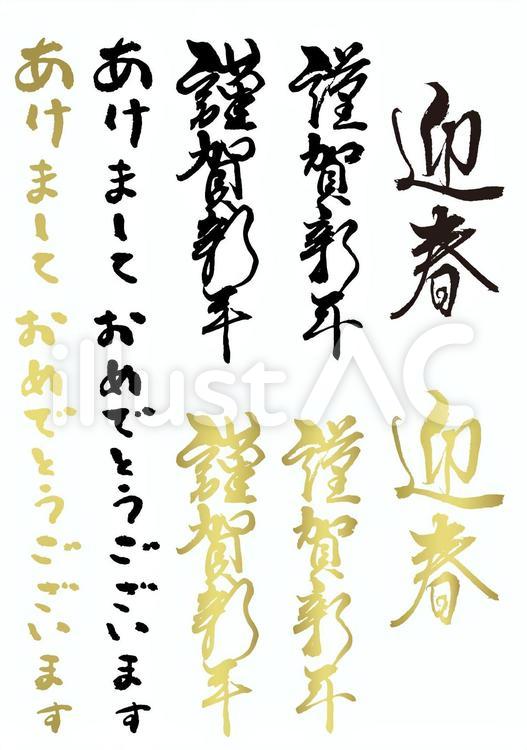 迎春
謹賀新年
謹賀新年
あけまして
おめでとうございます
あけまして
おめでとうございます
迎春
謹賀新年
謹賀新年
illustAC